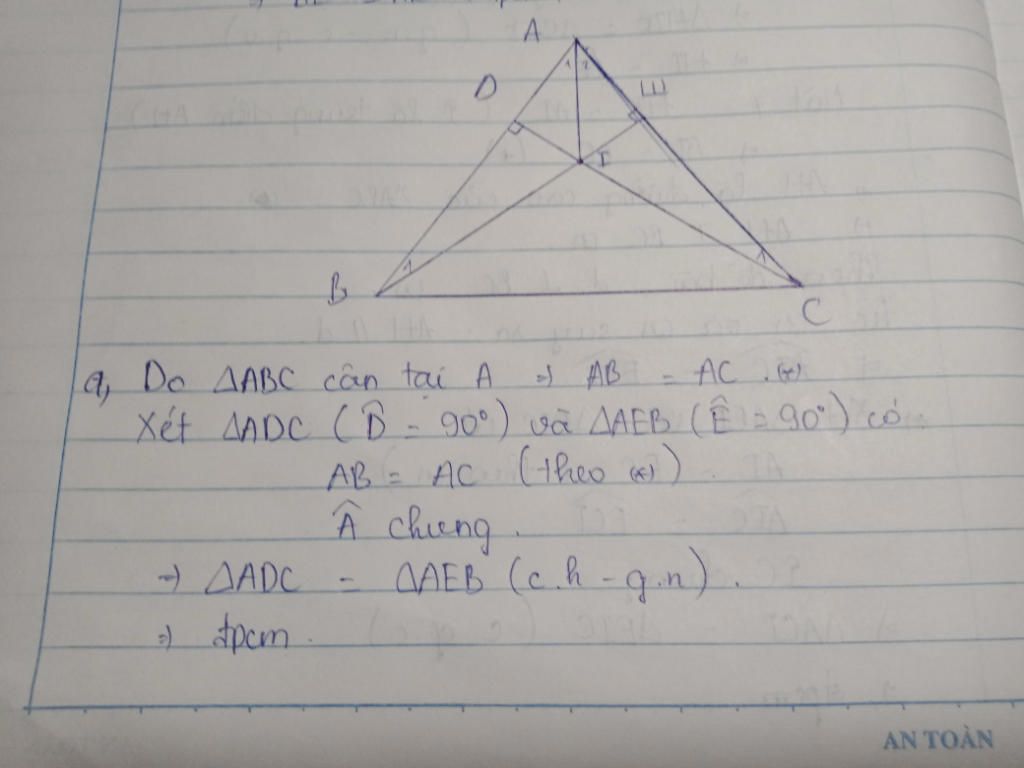 A
1 2
D
E
I
1
1
B
C
a, Do ΔABC cân tại A ⇒ AB = AC. (*)
Xét ΔADC (D̂ = 90°) và ΔAEB (Ê = 90°) có
AB = AC (theo (*)).
Â chung.
⇒ ΔADC = ΔAEB (c.h - g.n).
⇒ đpcm.
AN TOÀN